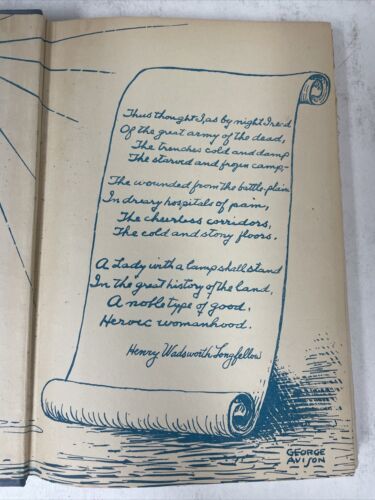 Thus thought I, as by night I read
Of the great army of the dead,
The trenches cold and damp
The starved and frozen camp,-
The wounded from the battle-plain
In dreary hospitals of pain,
The cheerless corridors,
The cold and stony floors.
A Lady with a lamp shall stand
In the great history of the land,
A noble type of good,
Heroic womanhood.
Henry Wadsworth Longfellow
GEORGE
AVISON